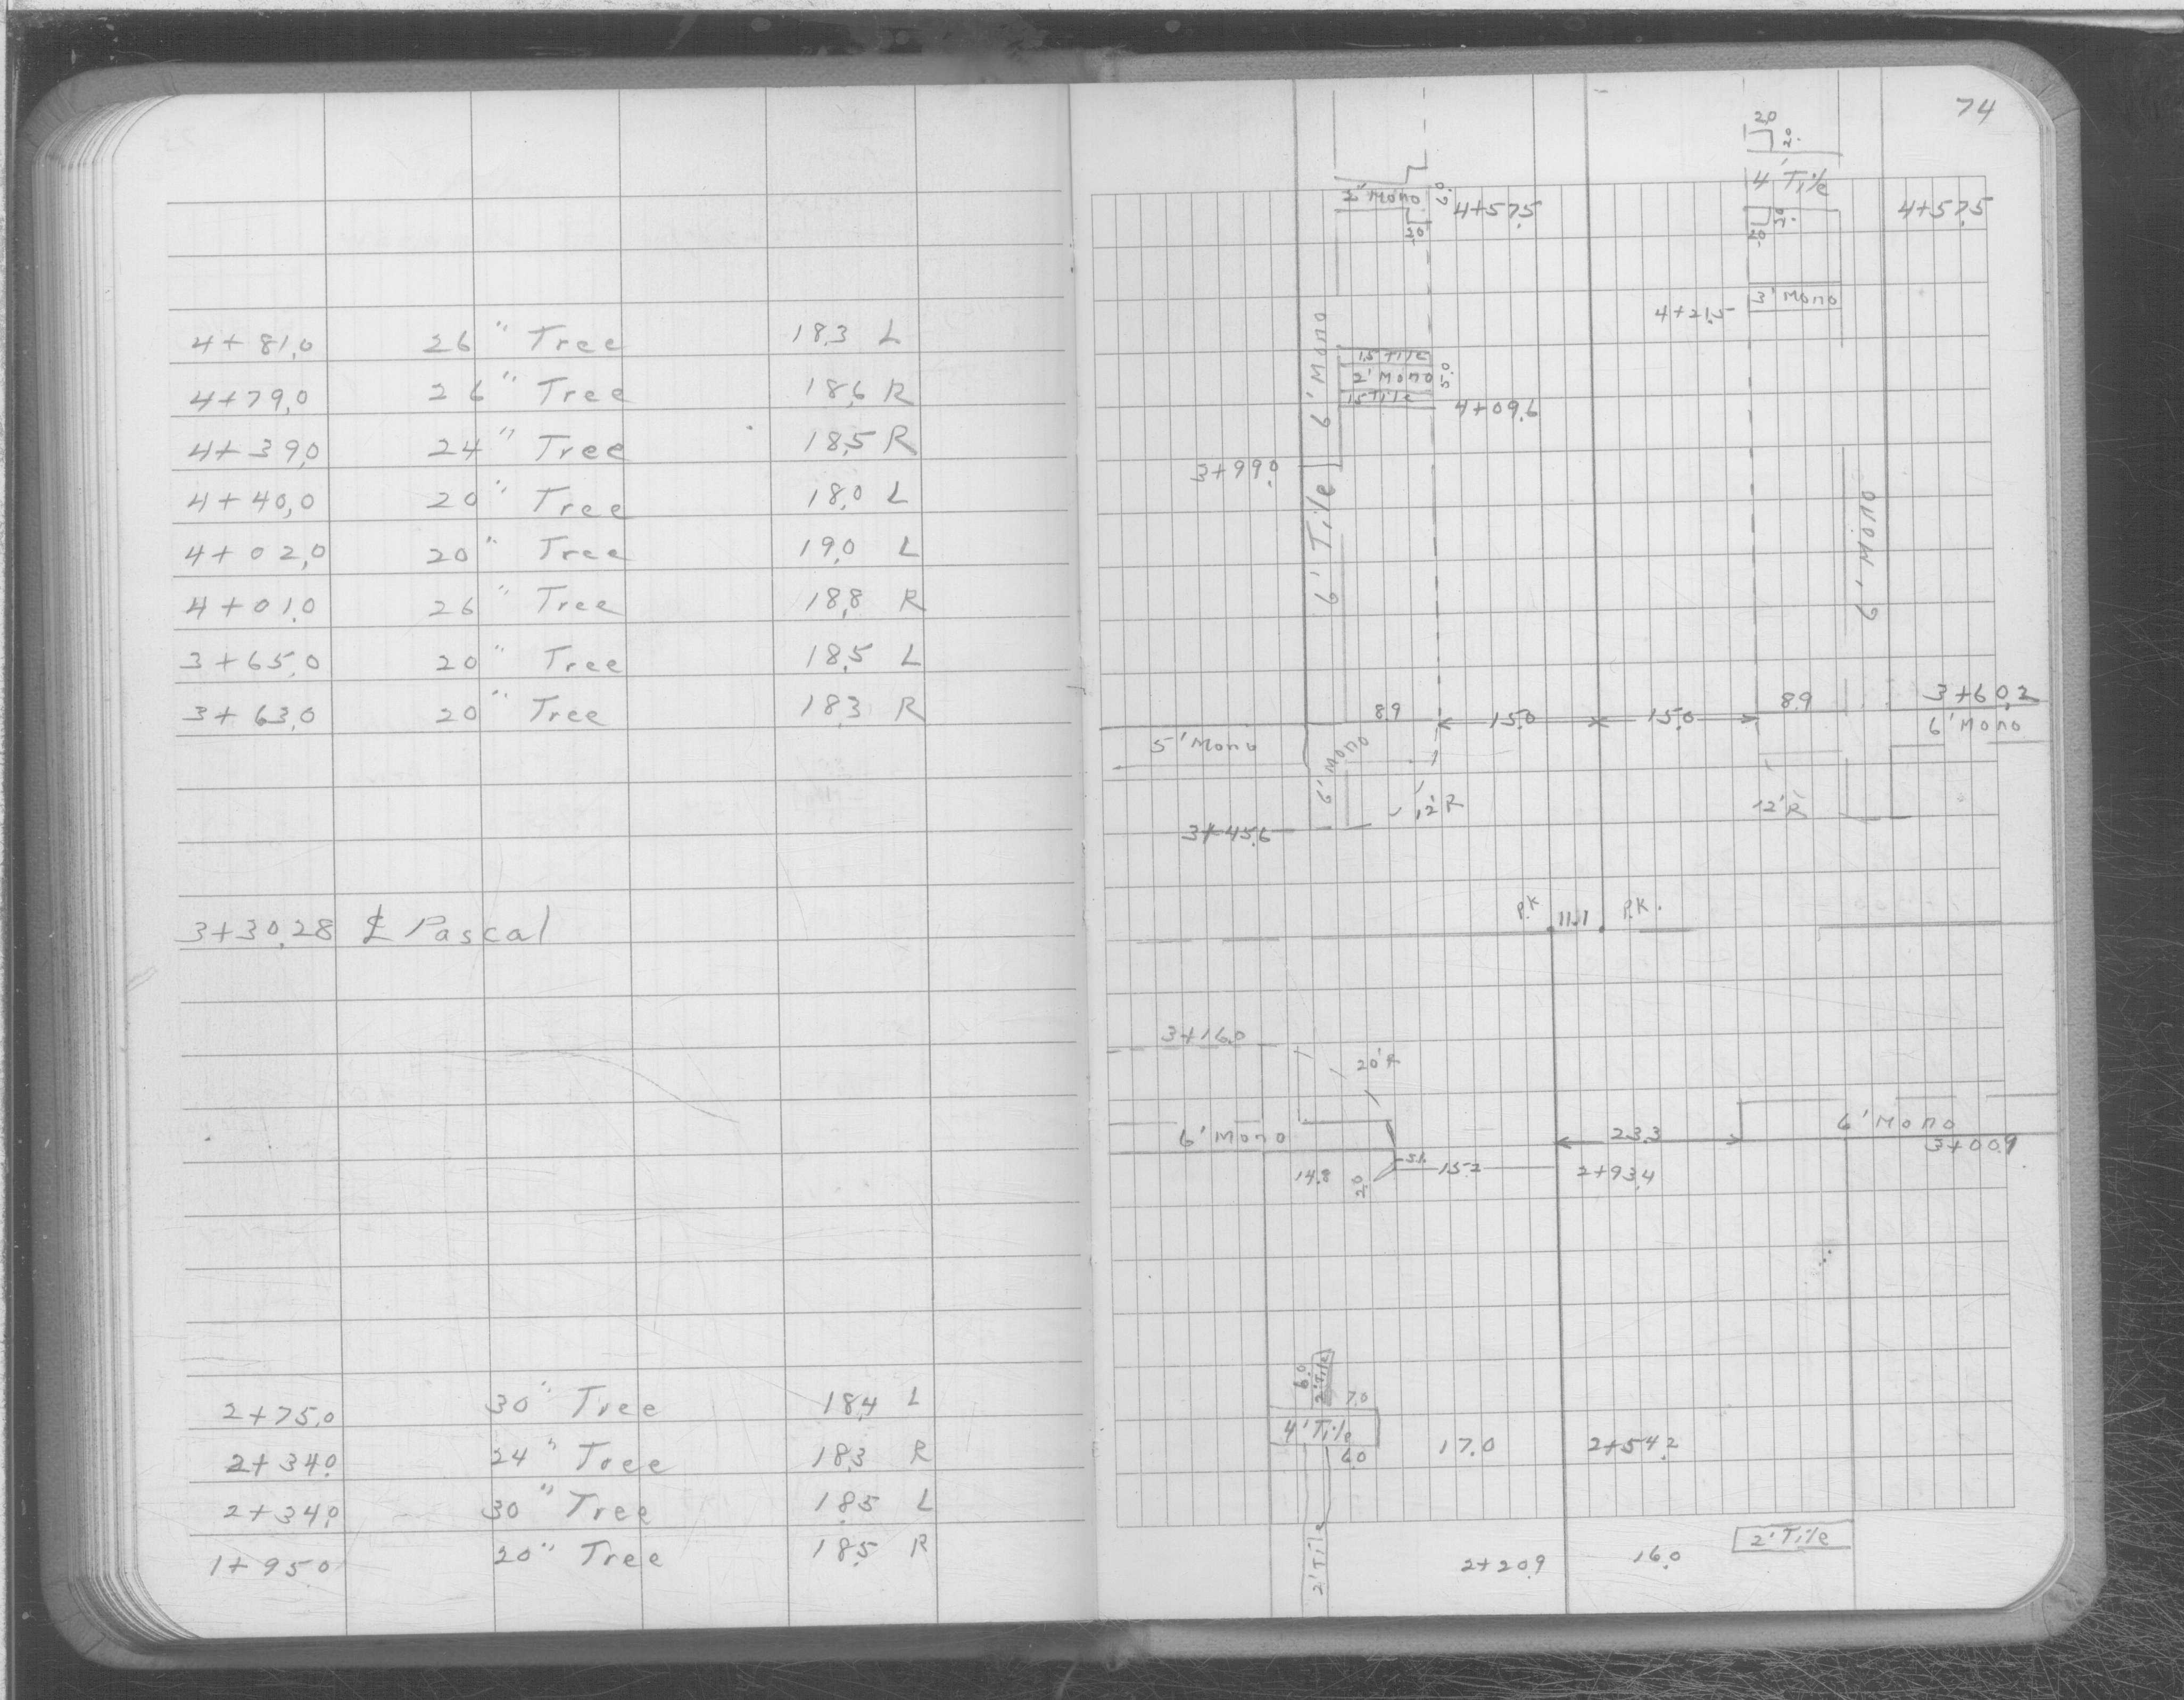 4+81.0 26" Tree 18.3 L
4+79.0 26" Tree 18.6 R
4+39.0 24" Tree 18.5 R
4+40.0 20" Tree 18.0 L
4+02.0 20" Tree 19.0 L
4+01.0 26" Tree 18.8 R
3+65.0 20" Tree 18.5 L
3+63.0 20" Tree 18.3 R
3+30.28 ℄ Pascal
2+75.0 30" Tree 18.4 L
2+34.0 24" Tree 18.3 R
2+34.0 30" Tree 18.5 L
1+95.0 20" Tree 18.5 R
74
2.0
2.0
4' Tile
2' Mono
4+57.5
2.0
2.0
2.0
4+57.5
3' Mono
4+21.5
6' Mono
1.5 Tile
2' Mono 5.0
1.5 Tile
4+09.6
3+99.0
6' Tile
6' Mono
8.9
15.0
15.0
8.9
3+60.2
5' Mono
6' Mono
6' Mono
12'R
12'R
3+45.6
P.K
11.1
P.K.
3+16.0
20'R
6' Mono
23.3
6' Mono
3+00.9
14.8
2.0
15.2
2+93.4
6.0
2' Tile
7.0
4' Tile
6.0
17.0
2+54.2
2' Tile
2+20.9
16.0
2' Tile